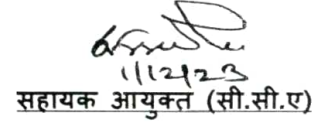 1/12/23
सहायक आयुक्त (सी.सी.ए)